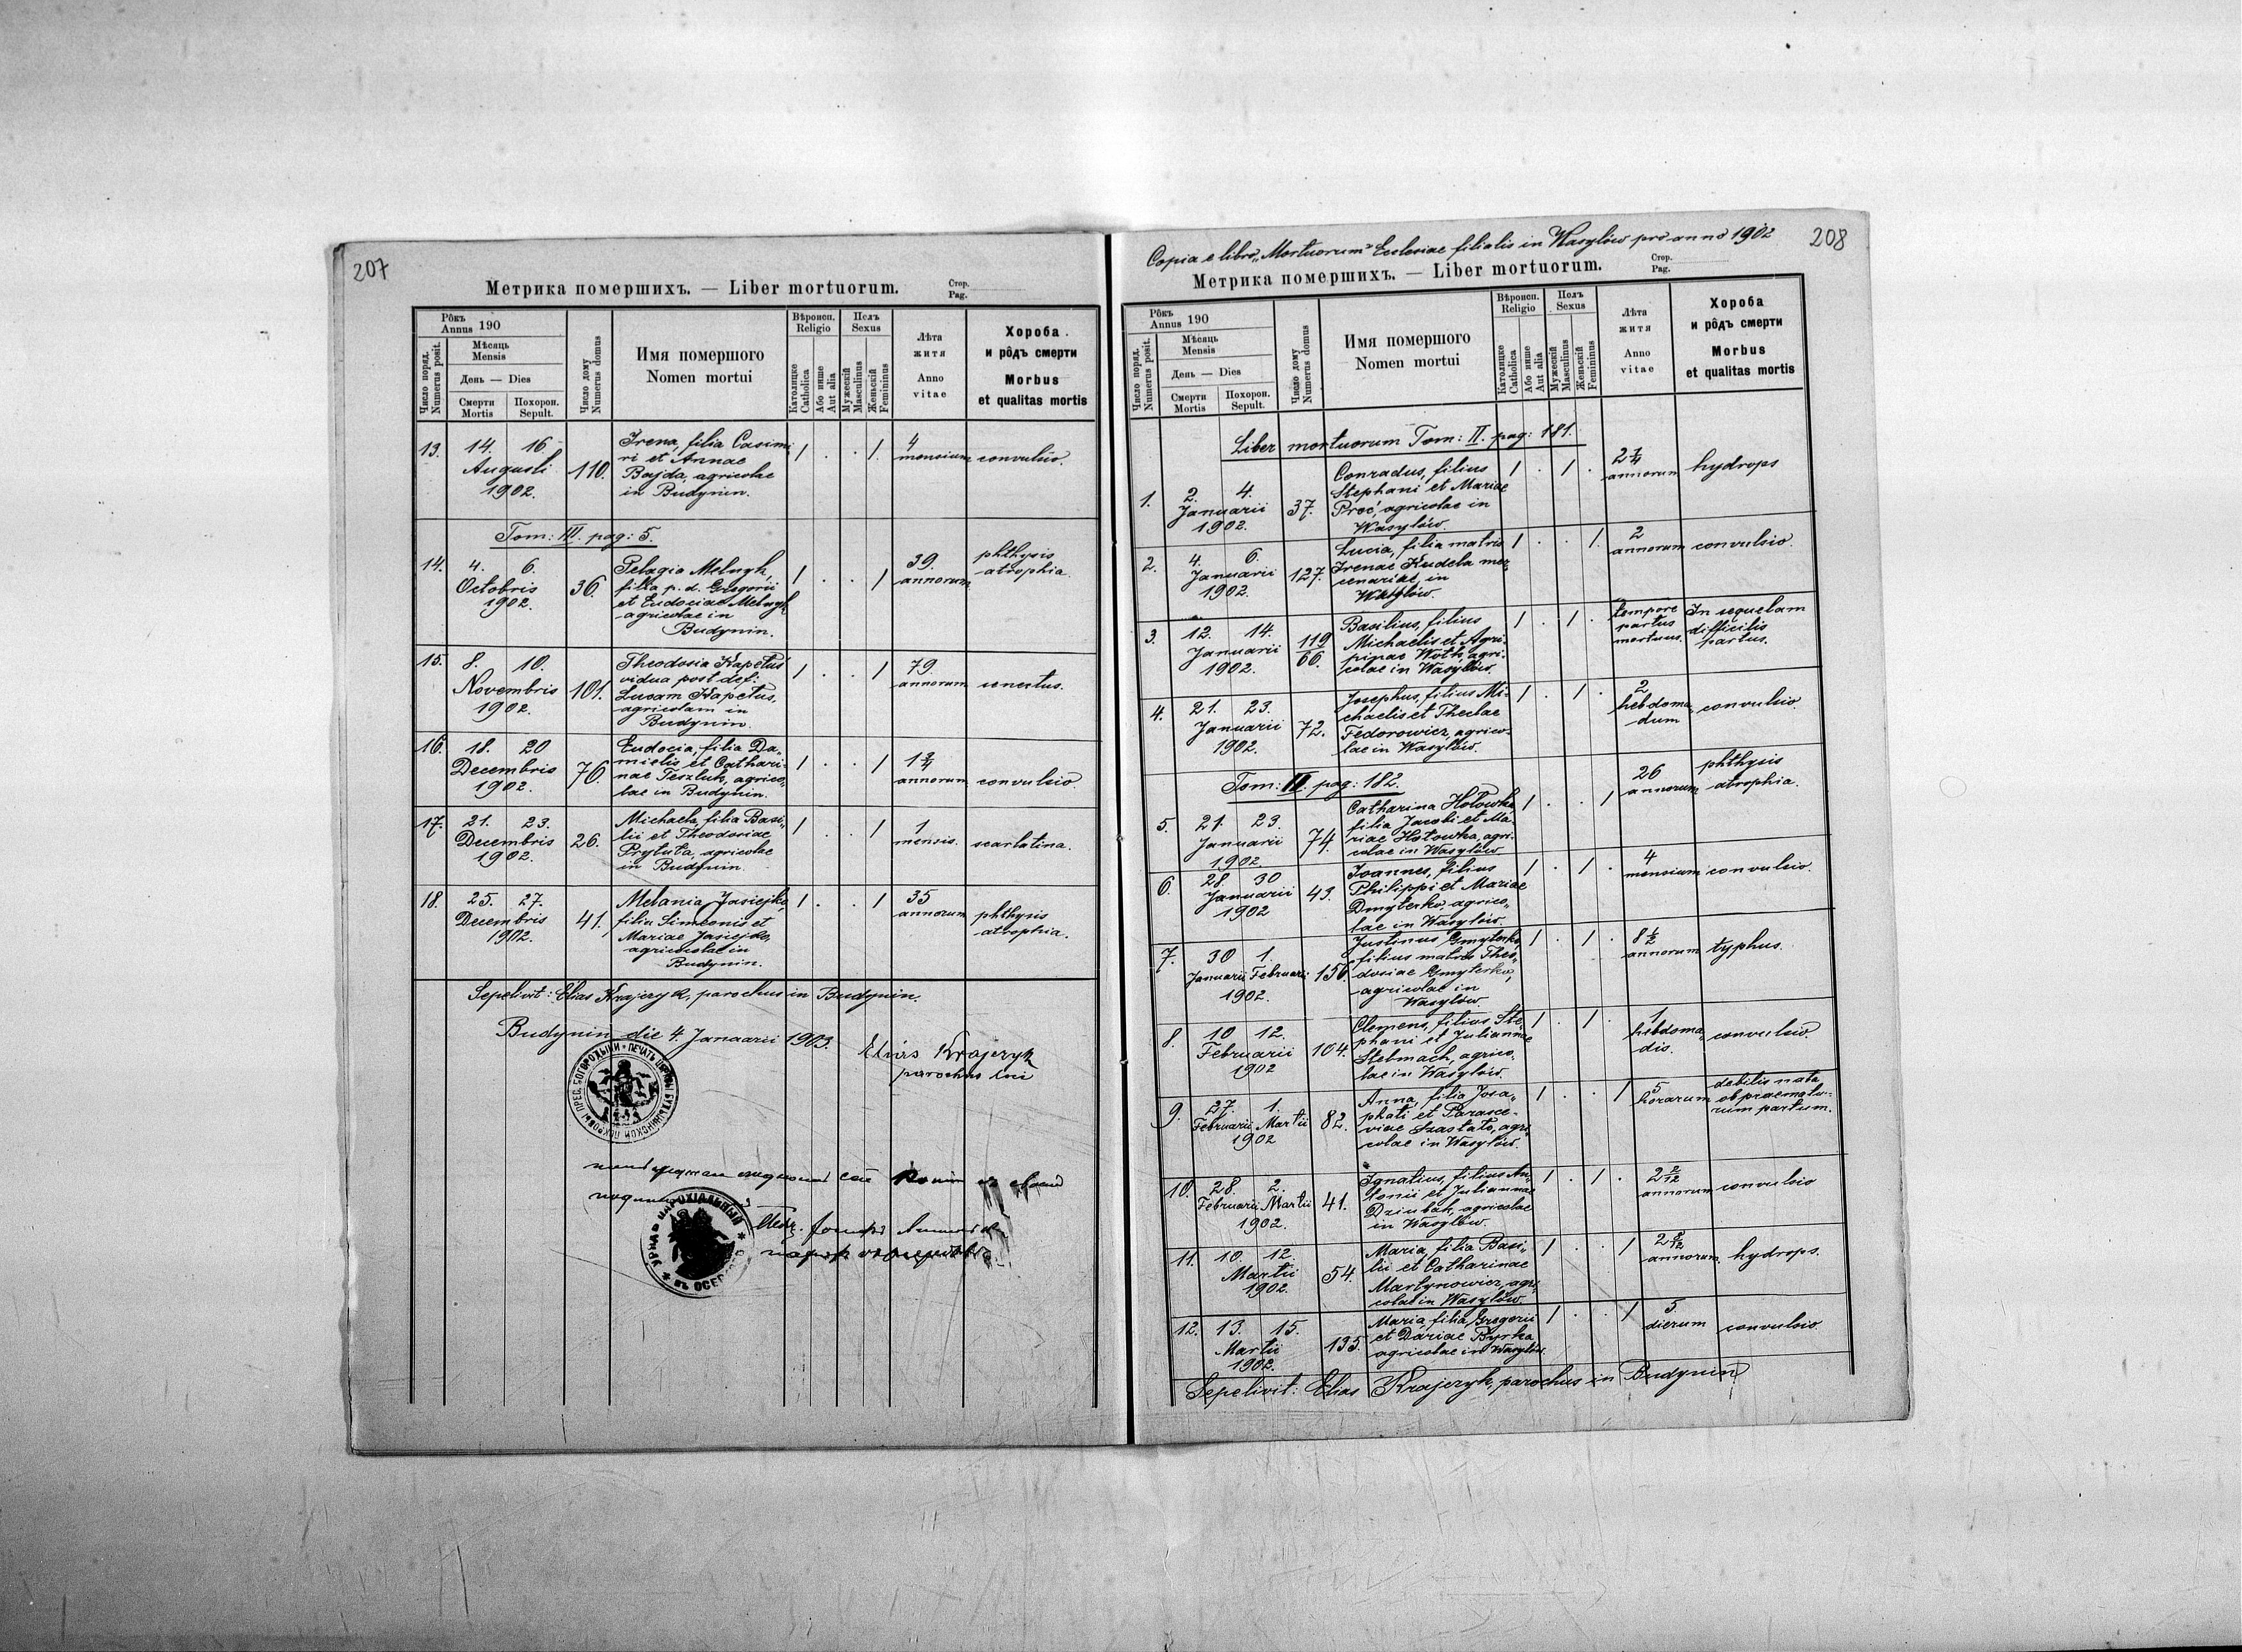 207
Метрика помершихъ. — Liber mortuorum.
Стор.
Pag.
Рôкъ
Annus 190
Число поряд.
Numerus posit.
Мѣсяць
Mensis
День — Dies
Смерти
Mortis
Похорон.
Sepult.
Число дому
Numerus domus
Имя помершого
Nomen mortui
Вѣроисп.
Religio
Католицке
Catholica
Або инше
Aut alia
Полъ
Sexus
Мужескій
Masculinus
Женьскій
Femininus
Лѣта
житя
Anno
vitae
Хороба
и рôдъ смерти
Morbus
et qualitas mortis
13. 14. 16. Augusti 1902. 110.
Irena, filia Casimi-
ri et Annae
Bajda, agricolae
in Budynin.
1 . . 1. 4 mensium convulsio.
Tom: III. pag: 5.
14. 4. 6. Octobris 1902. 36.
Pelagia Melnyk,
filia p. d. Gregorii
et Eudociae Melnyk
agricolae in
Budynin.
1 . . 1 39. annorum phthysis
atrophia.
15. 8. 10. Novembris 1902. 101.
Theodosia Kapetus
vidua post def:
Lucam Kapetus,
agricolam in
Budynin.
1 . . 1 79. annorum senectus.
16. 18. 20 Decembris 1902. 76.
Eudocia, filia Da„
mielis et Cathari-
nae Teszluk, agrico„
lae in Budynin.
1 . . 1 1 3/4 annorum convulsio.
17. 21. 23. Decembris 1902. 26.
Michaela, filia Basi„
lii et Theodosiae
Prytuta, agricolae
in Budynin.
1 . . 1 1 mensis. scarlatina.
18. 25. 27. Decembris 1902. 41.
Melania Jasiejko,
filia Simeonis et
Mariae Jasiejko,
agricolae in
Budynin.
1 . . 1 35 annorum phthysis
atrophia.
Sepelivit: Elias Krajczyk, parochus in Budynin.
Budynin die 4. Januarii 1903.
Elias Krajczyk
parochus loci
208
Copia e libro „Mortuorum" Ecclesiae filialis in Wasylów pro anno 1902
Метрика помершихъ. — Liber mortuorum.
Стор.
Pag.
Рôкъ
Annus 190
Число поряд.
Numerus posit.
Мѣсяць
Mensis
День — Dies
Смерти
Mortis
Похорон.
Sepult.
Число дому
Numerus domus
Имя помершого
Nomen mortui
Вѣроисп.
Religio
Католицке
Catholica
Або инше
Aut alia
Полъ
Sexus
Мужескій
Masculinus
Женьскій
Femininus
Лѣта
житя
Anno
vitae
Хороба
и рôдъ смерти
Morbus
et qualitas mortis
Liber mortuorum Tom: II. pag: 181.
1. 2. 4. Januarii 1902. 37.
Conradus, filius
Stephani et Mariae
Proć, agricolae in
Wasylów.
1 . 1 . 2 1/4 annorum hydrops
2. 4. 6. Januarii 1902. 127.
Lucia, filia matris
Irenae Kudela mer„
cenariae, in
Wasylów.
1 . . 1. 2 annorum convulsio.
3. 12. 14. Januarii 1902. 119/66.
Basilius, filius
Michaelis et Agri-
pinae Woth, agri-
colae in Wasylów.
1 . 1 . tempore
partus
mortuus.
In sequelam
difficilis
partus.
4. 21. 23. Januarii 1902. 72.
Josephus, filius Mi-
chaelis et Theclae
Fedorowicz, agrico-
lae in Wasylów.
1 . 1 . 2 hebdoma„
dum convulsio.
Tom: II. pag: 182.
5. 21. 23. Januarii 1902. 74.
Catharina Hołowka
filia Jacobi et Ma-
riae Hołowka, agri-
colae in Wasylów.
1 . . 1 26 annorum phthysis
atrophia.
6. 28. 30 Januarii 1902 43.
Joannes, filius
Philippi et Mariae
Dmyterko, agrico„
lae in Wasylów.
1 . 1 . 4 mensium convulsio.
7. 30 1. Januarii Februarii 1902. 156.
Justinus Dmyterko,
filius matris Theo„
dosiae Dmyterko,
agricolae in
Wasylów.
1 . 1 . 8 1/2 annorum typhus.
8. 10 12. Februarii 1902 104.
Clemens, filius Ste„
phani et Juliannae
Stelmach, agrico„
lae in Wasylów.
1 . 1 . 1 hebdoma„
dis. convulsio.
9. 27. 1. Februarii Martii 1902 82.
Anna, filia Josa„
phati et Parasce-
viae Szastała, agri„
colae in Wasylów.
1 . . 1 5 horarum debilis nata
ob praematu-
rum partum.
10. 28. 2. Februarii Martii 1902. 41.
Ignatius, filius An„
tonii et Juliannae
Dziubak, agricolae
in Wasylów.
1 . 1 . 2 2/12 annorum convulsio
11. 10. 12. Martii 1902. 54.
Maria, filia Basi„
lii et Catharinae
Martynowicz, agri„
colae in Wasylów.
1 . . 1 2 8/12 annorum. hydrops.
12. 13. 15. Martii 1902. 135.
Maria, filia Gregorii
et Dariae Byrka
agricolae in Wasylów.
1 . . 1 5. dierum convulsio.
Sepelivit: Elias Krajczyk, parochus in Budynin